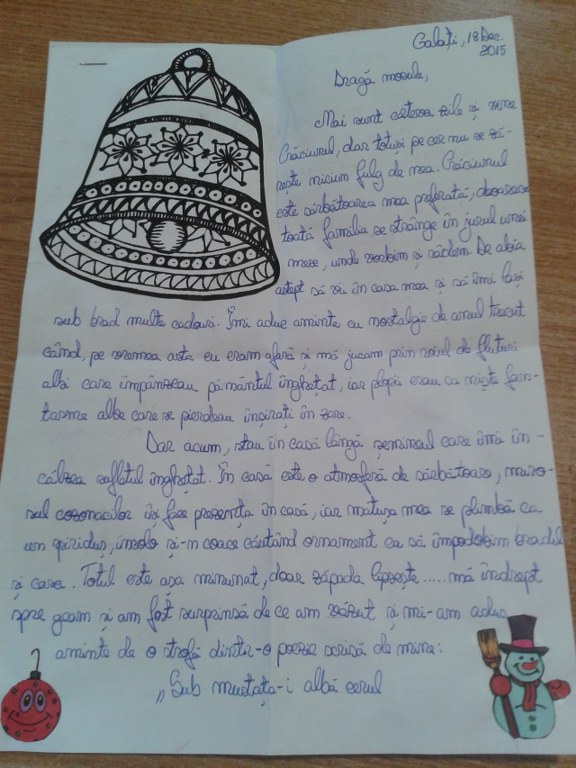 Galați, 18 Dec.
2015
Dragă moșule,
Mai sunt câteva zile și vine
Crăciunul, dar totuși pe cer nu se ză-
rește niciun fulg de nea. Crăciunul
este sărbătoarea mea preferată, deoarece
toată familia se strânge în jurul unei
mese, unde vorbim și râdem. De abia
aștept să vii în casa mea și să îmi lași
sub brad multe cadouri. Îmi aduc aminte cu nostalgie de anul trecut
când, pe vremea asta eu eram afară și mă jucam prin roiul de fluturi
albi care împânzeau pământul înghețat, iar plopii erau ca niște fan-
tasme albe care se pierdeau înșirați în zare.
Dar acum, stau în casă lângă șemineul care îmi în-
călzea sufletul înghețat. În casă este o atmosferă de sărbătoare, miro-
sul cozonacilor își face prezența în casă, iar mătușa mea se plimbă ca
un spiriduș, încolo și-n coace căutând ornament ca să împodobim bradul
și casa. Totul este așa minunat, doar zăpada lipsește ..... mă îndrept
spre geam și am fost surprinsă de ce am văzut și mi-am adus
aminte de o strofă dintr-o poezie scrisă de mine:
„Sub mustața-i albă cerul